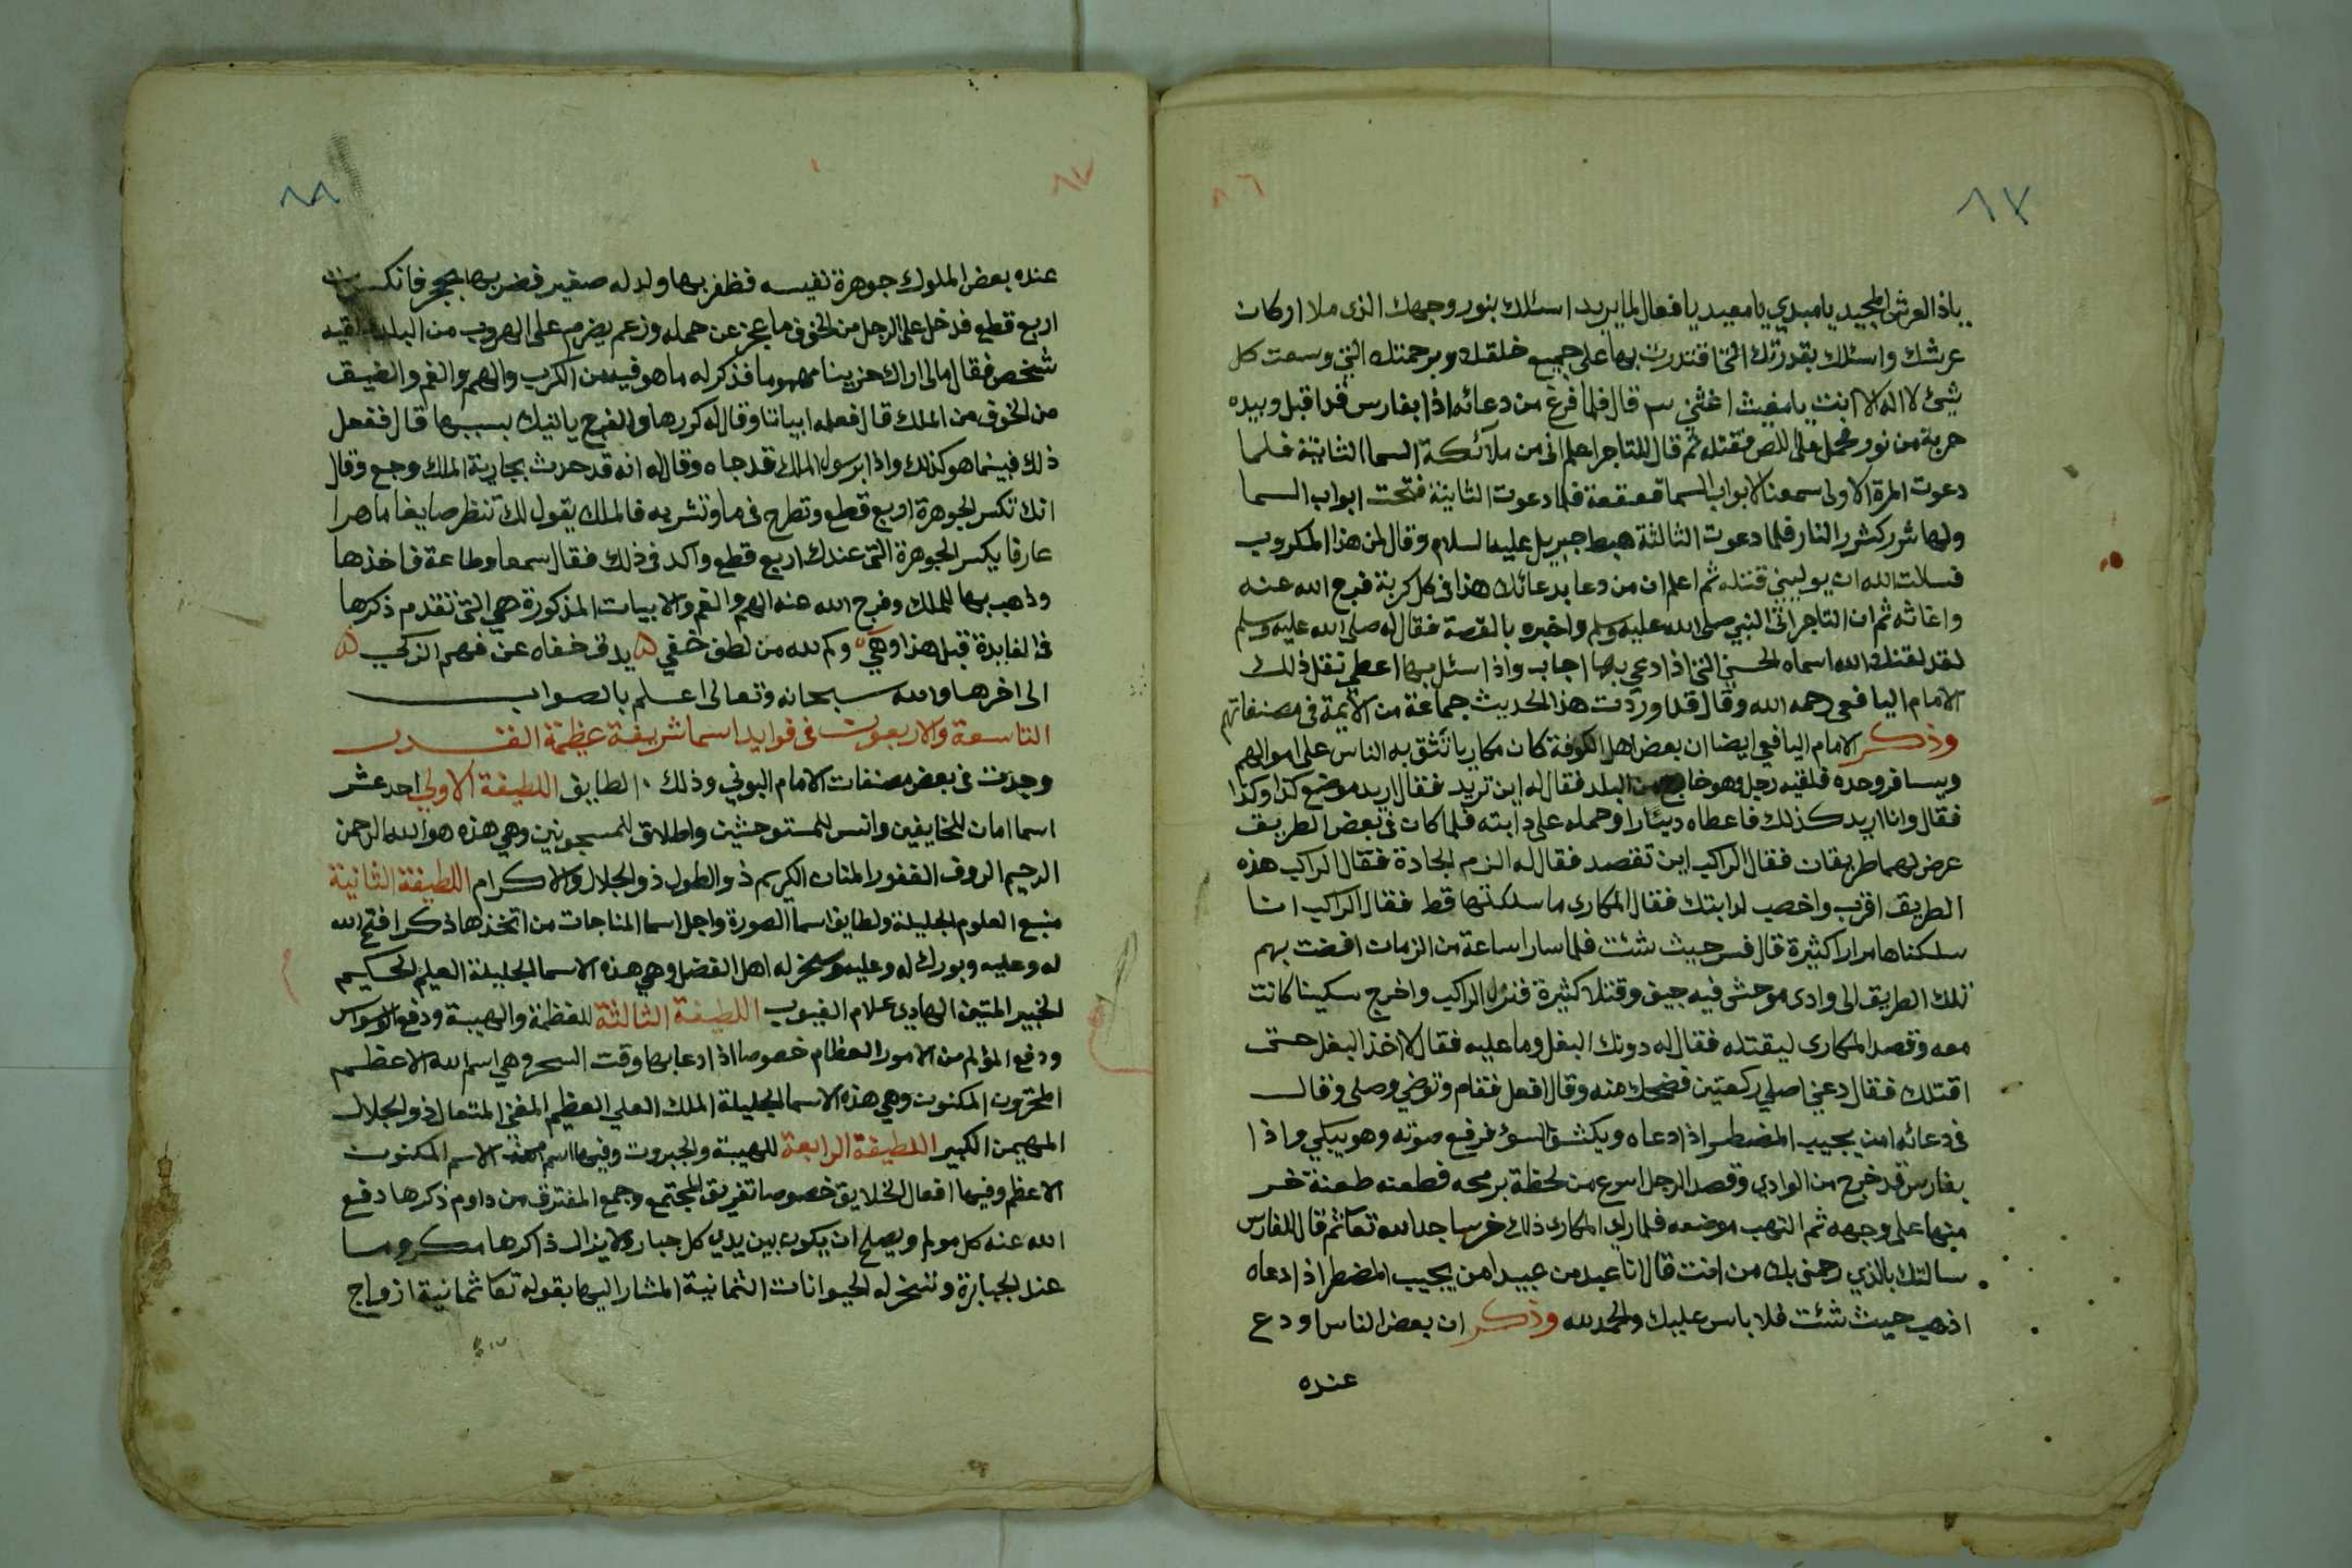 ٨٧
٨٦
ياذا العرش المجيد يا مبدي يا معيد يا فعال لما يريد اسئلك بنور وجهك الذى ملا اركان
عرشك واسئلك بقدرتك التى اقتدرت بها على جميع خلقك وبرحمتك التى وسعت كل
شيئ لا اله الا انت يا مغيث اغثنى قال فلما فرغ من دعائه اذا بفارس قد اقبل وبيده
حربة من نور فحمل على اللص فقتله ثم قال للتاجر اعلم انى من ملائكة السما الثانية فلما
دعوت المرة الاولى سمعنا لابواب السما قعقعة فلما دعوت الثانية فتحت ابواب السما
ولها شرر كشرر النار فلما دعوت الثالثة هبط جبريل عليه السلام وقال لمن هذا المكروب
فسالت الله ان يوليني قتله ثم اعلم ان من دعا بدعائك هذا فى كل كربة فرج الله عنه
واغاثه ثم ان التاجر اتى النبي صلى الله عليه وسلم واخبره بالقصة فقال له صلى الله عليه وسلم
لقد لقنك الله اسماه الحسنى التى اذا دعي بها اجاب واذا سئل بها اعطى نقل ذلك
الامام اليافعى رحمه الله وقال قد اوردت هذا الحديث جماعة من الائمة فى مصنفاتهم
وذكر الامام اليافعي ايضا ان بعض اهل الكوفة كان مكاريا تثق به الناس على اموالهم
ويسافر وحده فلقيه رجل وهو خارج من البلد فقال له اين تريد فقال اريد موضع كذا وكذا
فقال وانا اريد كذلك فاعطاه دينارا وحمله على دابته فلما كان فى بعض الطريق
عرض لهما طريقان فقال الراكب اين تقصد فقال له الزم الجادة فقال الراكب هذه
الطريق اقرب واخصب لدابتك فقال المكارى ما سلكتها قط فقال الراكب انا
سلكناها مرارا كثيرة قال فسر حيث شئت فلما سارا ساعة من الزمان افضت بهم
تلك الطريق الى وادى موحش فيه جيف وقتلا كثيرة فنزل الراكب واخرج سكينا كانت
معه وقصد المكارى ليقتله فقال له دونك البغل وما عليه فقال لا اخذ البغل حتى
اقتلك فقال دعني اصلي ركعتين فضحك منه وقال افعل فقام وتوضي وصلى وقال
فى دعائه امن يجيب المضطر اذا دعاه ويكشف السؤ فرفع صوته وهو يبكي واذا
بفارس قد خرج من الوادي وقصد الرجل اسرع من لحظة برمحه فطعنه طعنة خر
منها على وجهه ثم التهب موضعه فلما راى المكارى ذلك خر ساجدا لله تعا ثم قال للفارس
سالتك بالذي رحمنى بك من انت قال انا عبد من عبيد امن يجيب المضطر اذا دعاه
اذهب حيث شئت فلا باس عليك والحمد لله وذكر ان بعض الناس اودع
عنده
٨٧
٨٨
عنده بعض الملوك جوهرة نفيسه فظفر بها ولد له صغير فضربها بحجر فانكسرت
اربع قطع فدخل على الرجل من الخوف ما عجز عن حمله وزعم على الهروب من البلد فلقيه
شخص فقال مالى اراك حزينا مهموما فذكر له ما هو فيه من الكرب والهم والغم والضيق
من الخوف من الملك قال فعلمه ابياتا وقال له كررها والفرج ياتيك بسببها قال ففعل
ذلك فبينما هو كذلك واذا برسول الملك قد جاه وقال له انه قد حدث بجارية الملك وجع وقال
انك تكسر الجوهرة اربع قطع وتطرح فى ما وتشربه فالملك يقول لك تنظر صايغا ماهرا
عارفا يكسر الجوهرة التى عندك اربع قطع واكد فى ذلك فقال سمعا وطاعة فاخذها
وذهب بها للملك وفرج الله عنه الهم والغم والابيات المذكورة هي التى تقدم ذكرها
فى الفايدة قبل هذا وهي وكم لله من لطف خفي يدق خفاه عن فهم الزكي
الى اخرها والله سبحانه وتعالى اعلم بالصواب
التاسعة والاربعون فى فوايد اسما شريفة عظيمة القدر
وجدت فى بعض مصنفات الامام البوني وذلك الطايف اللطيفة الاولي احد عشر
اسما امان للخايفين وانس للمستوحشين واطلاق للمسجونين وهي هذه هو الله الرحمن
الرحيم الروف الغفور المنان الكريم ذو الطول ذو الجلال والاكرام اللطيفة الثانية
منبع العلوم الجليلة ولطايف اسما الصورة واجل اسما المناجات من اتخذها ذكرا فتح الله
له وعليه وبورك له وعليه وسخر له اهل الفضل وهي هذه الاسما الجليلة العليم الحكيم
الخبير المتين الهادى علام الغيوب اللطيفة الثالثة للعظمة والهيبة ودفع الوسواس
ودفع المؤلم من الامور العظام خصوصا اذا دعا بها وقت السحر وهي اسم الله الاعظم
المخزون المكنون وهي هذه الاسما الجليلة الملك العلي العظيم المغنى المتعال ذو الجلال
المهيمن الكبير اللطيفة الرابعة للهيبة والجبروت وفيها اسم الاسم المكنون
الاعظم وفيها افعال الخلايق خصوصا تفريق المجتمع وجمع المفترق من داوم ذكرها دفع
الله عنه كل مولم ويصلح ان يكون بين يدي كل جبار ولا يزال ذاكرها مكروما
عند الجبابرة وتسخر له الحيوانات الثمانية المشار اليها بقوله تعا ثمانية ازواج